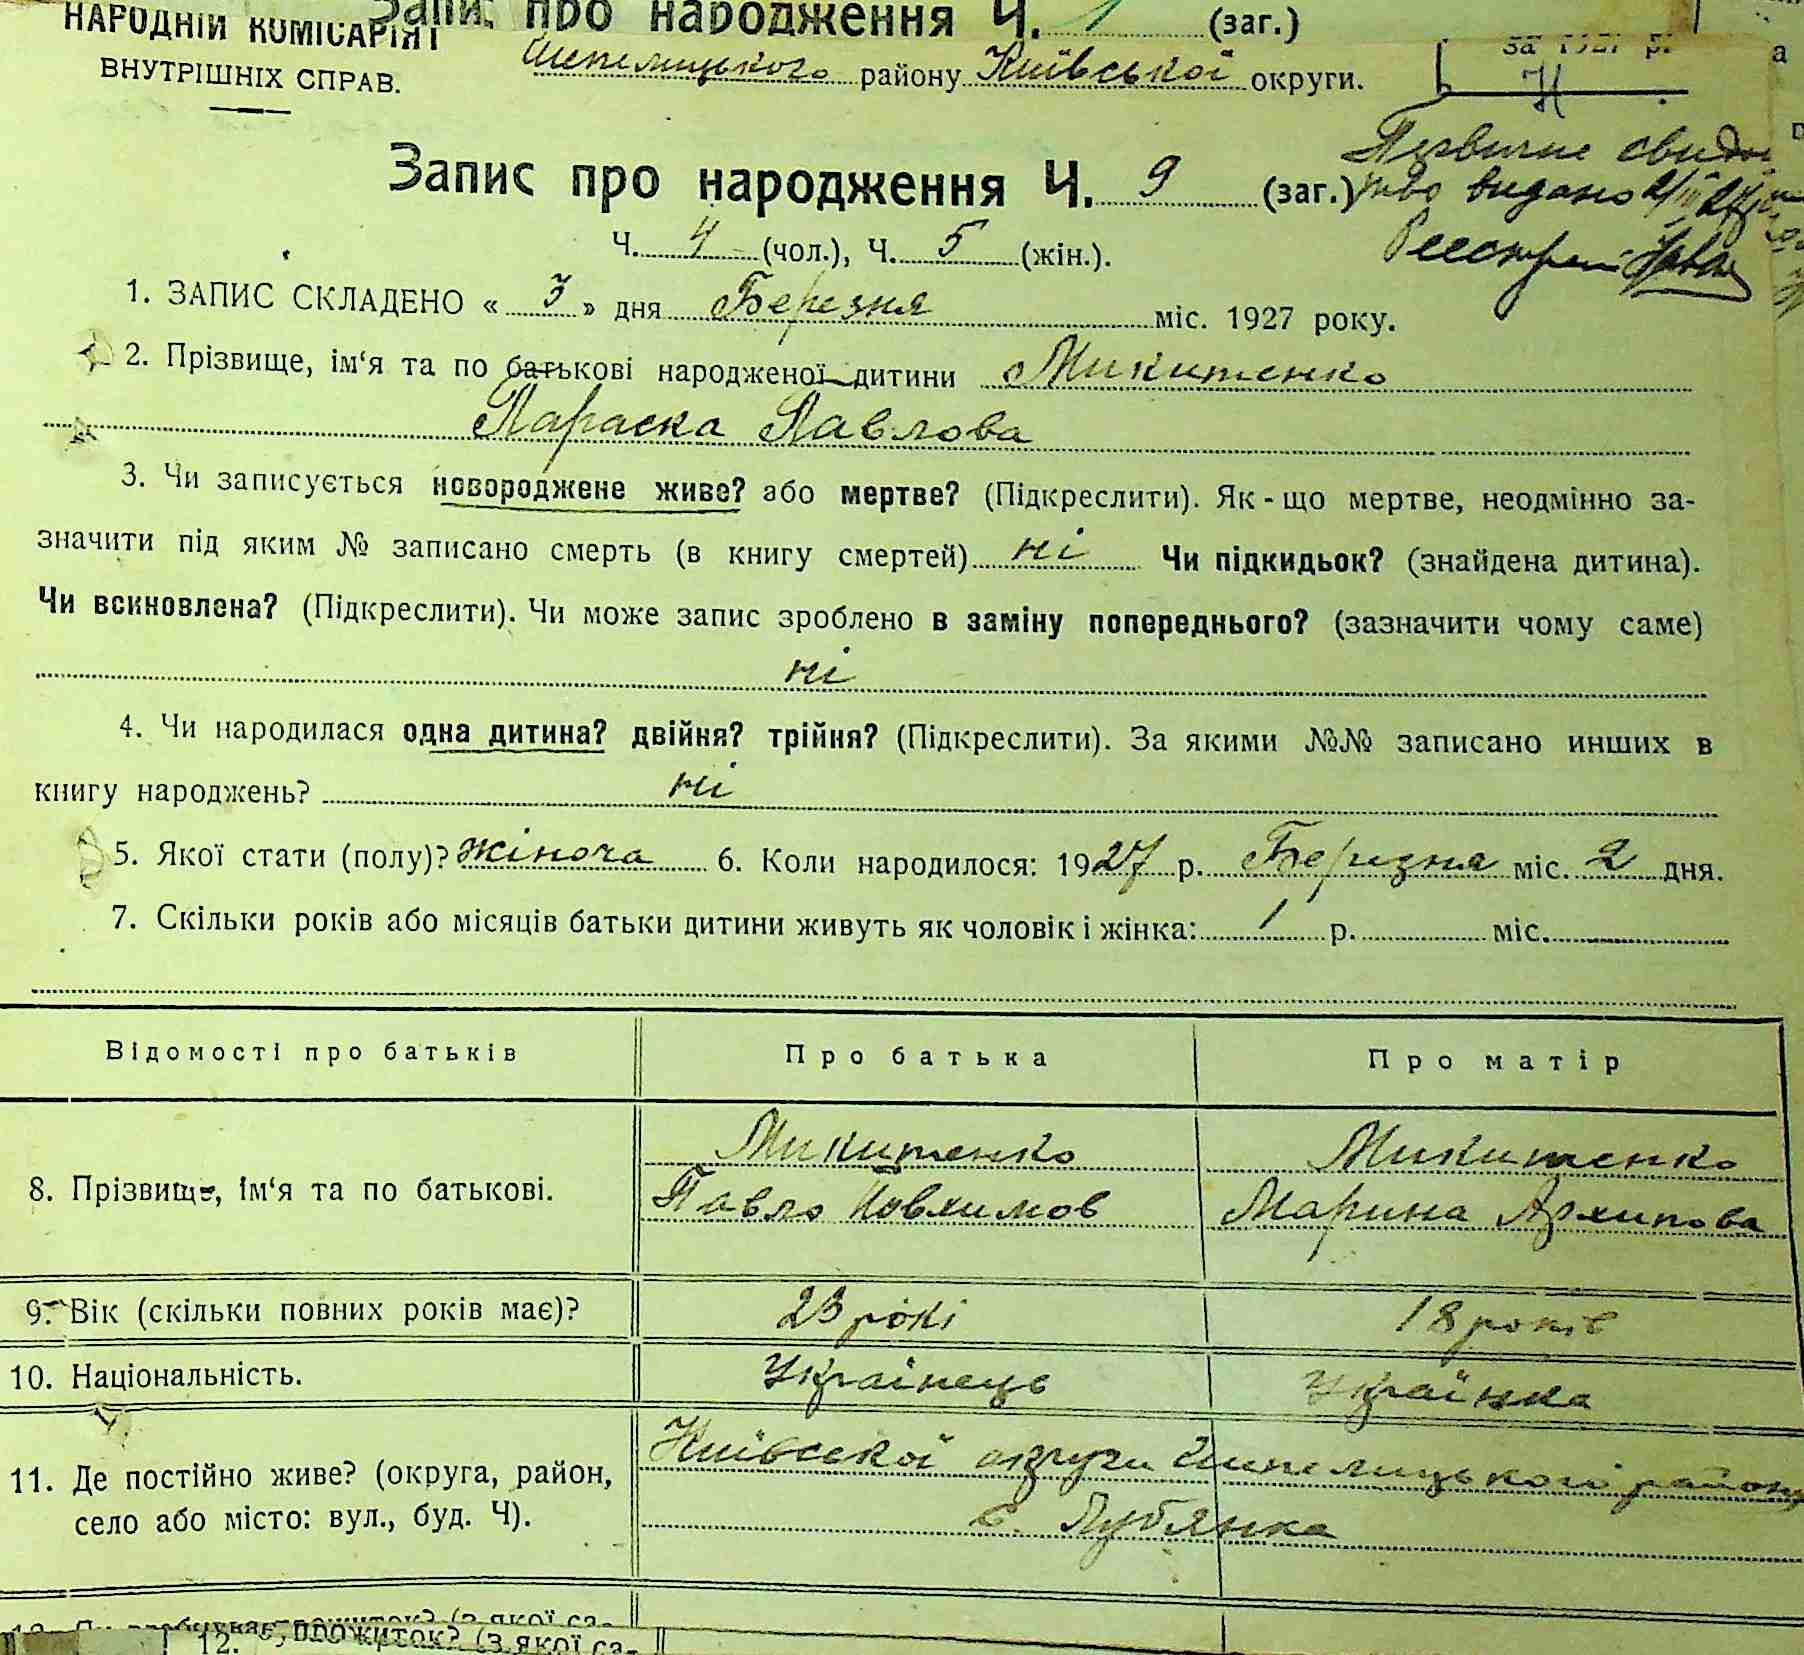 Запис про народження Ч. 1 (заг.)
НАРОДНІЙ КОМІСАРІЯТ
ВНУТРІШНІХ СПРАВ.
Шепелицького району Київської округи.
за 1927 р.
Н
Запис про народження Ч. 9 (заг.)
Первичне свидо
тво видано 2/III 27
Ч. 4 (чол.), Ч. 5 (жін.).
1. ЗАПИС СКЛАДЕНО « 3 » дня Березня міс. 1927 року.
2. Прізвище, ім‘я та по батькові народженої дитини Микитенко
Параска Павлова
3. Чи записується новороджене живе? або мертве? (Підкреслити). Як-що мертве, неодмінно за-
значити під яким № записано смерть (в книгу смертей) ні Чи підкидьок? (знайдена дитина).
Чи всиновлена? (Підкреслити). Чи може запис зроблено в заміну попереднього? (зазначити чому саме)
ні
4. Чи народилася одна дитина? двійня? трійня? (Підкреслити). За якими №№ записано инших в
книгу народжень? ні
5. Якої стати (полу)? жіноча 6. Коли народилося: 1927 р. Березня міс. 2 дня.
7. Скільки років або місяців батьки дитини живуть як чоловік і жінка: 1 р. міс.
Відомості про батьків Про батька Про матір
8. Прізвище, ім‘я та по батькові. Микитенко Микитенко
Павло Йовхимов Марина Архипова
9. Вік (скільки повних років має)? 23 рокі 18 років
10. Національність. Українець Українка
11. Де постійно живе? (округа, район, Київської округи Шепелицького району
село або місто: вул., буд. Ч). с. Лубянка
12. прожиток? (з якої са-